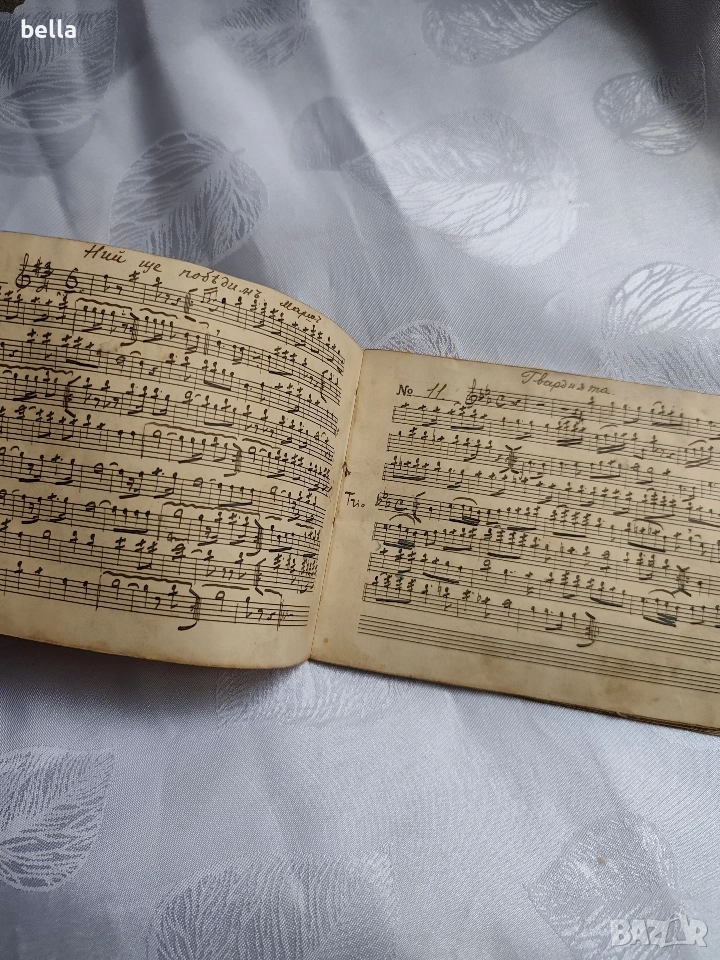 bella
Ний ще побѣдимъ маршъ
Гвардията
№ 11
Trio
BAZAR